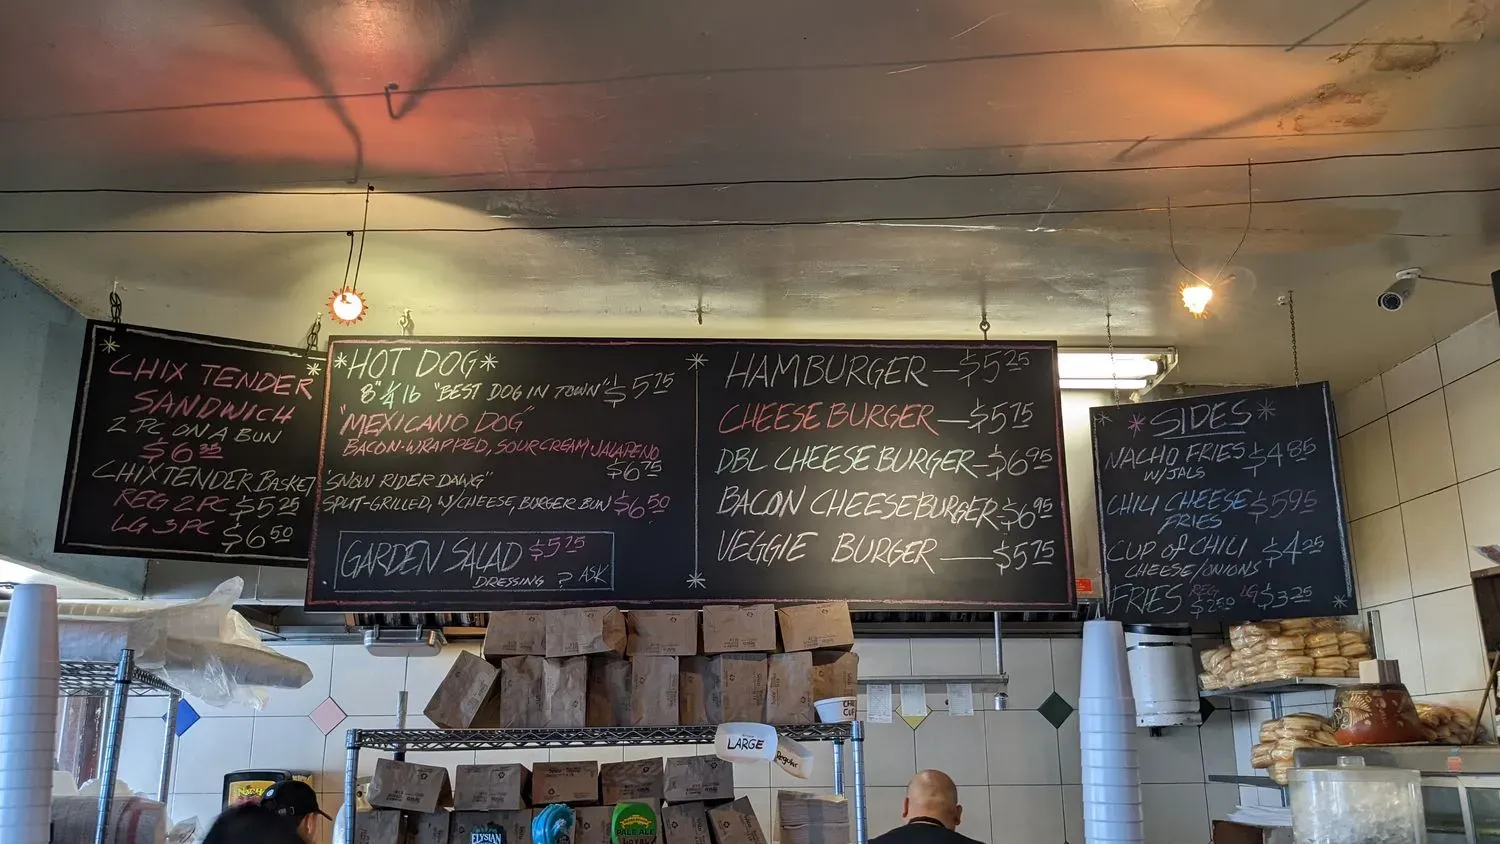 CHIX TENDER
SANDWICH
2 PC ON A BUN
$6.35
CHIX TENDER BASKET
REG 2 PC $5.25
LG 3 PC $6.50
*HOT DOG*
8" 1/4 lb "BEST DOG IN TOWN" $5.75
"MEXICANO DOG"
BACON-WRAPPED, SOUR CREAM JALAPENO
$6.75
"SNOW RIDER DAWG"
SPLIT-GRILLED, W/CHEESE, BURGER BUN $6.50
GARDEN SALAD $5.75
DRESSING ? ASK
HAMBURGER - $5.25
CHEESE BURGER - $5.75
DBL CHEESE BURGER - $6.95
BACON CHEESEBURGER $6.95
VEGGIE BURGER - $5.75
* SIDES *
NACHO FRIES $4.85
W/JALS
CHILI CHEESE $5.95
FRIES
CUP of CHILI $4.25
CHEESE/ONIONS
FRIES REG $2.50 LG $3.25
LARGE
Regular
ELYSIAN
PALE ALE